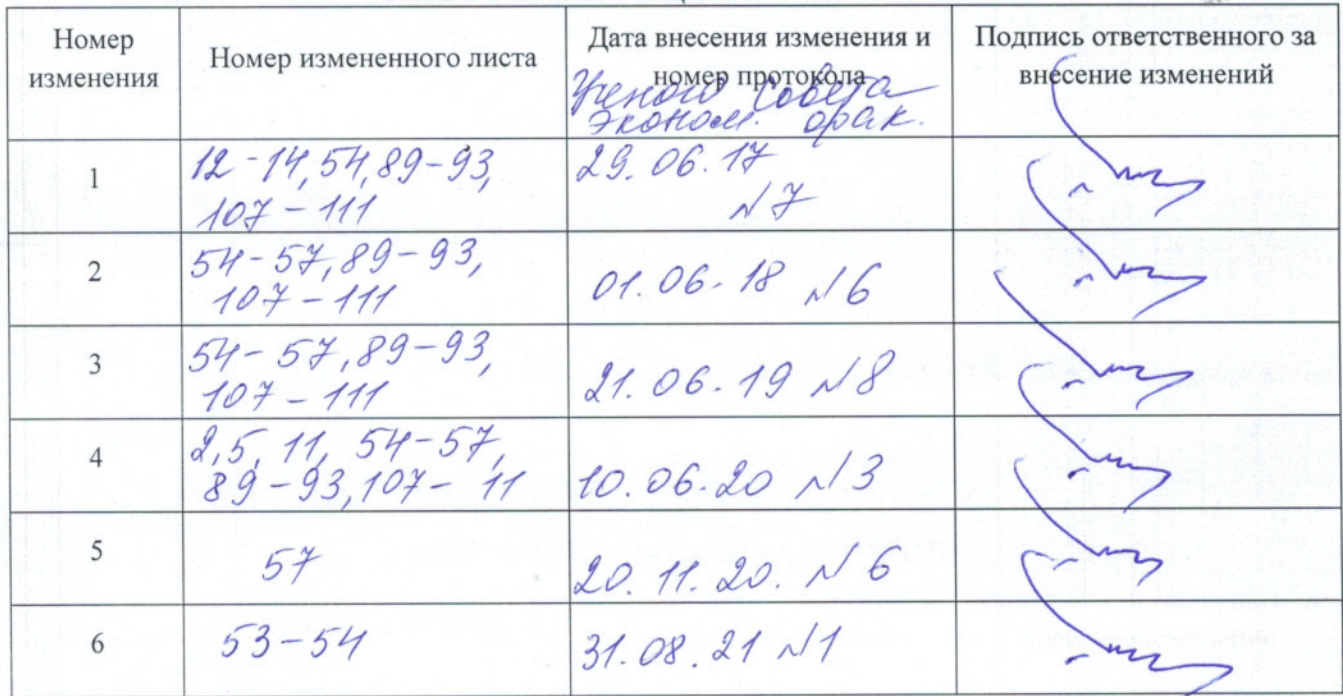 Номер изменения
Номер измененного листа
Дата внесения изменения и
номер протокола
Ученого Совета
Эконом. фак.
Подпись ответственного за
внесение изменений
1
12-14, 54, 89-93,
107-111
29.06.17
№7
2
54-57, 89-93,
107-111
01.06.18 №6
3
54-57, 89-93,
107-111
21.06.19 №8
4
2, 5, 11, 54-57,
89-93, 107- 11
10.06.20 №3
5
57
20.11.20. №6
6
53-54
31.08.21 №1